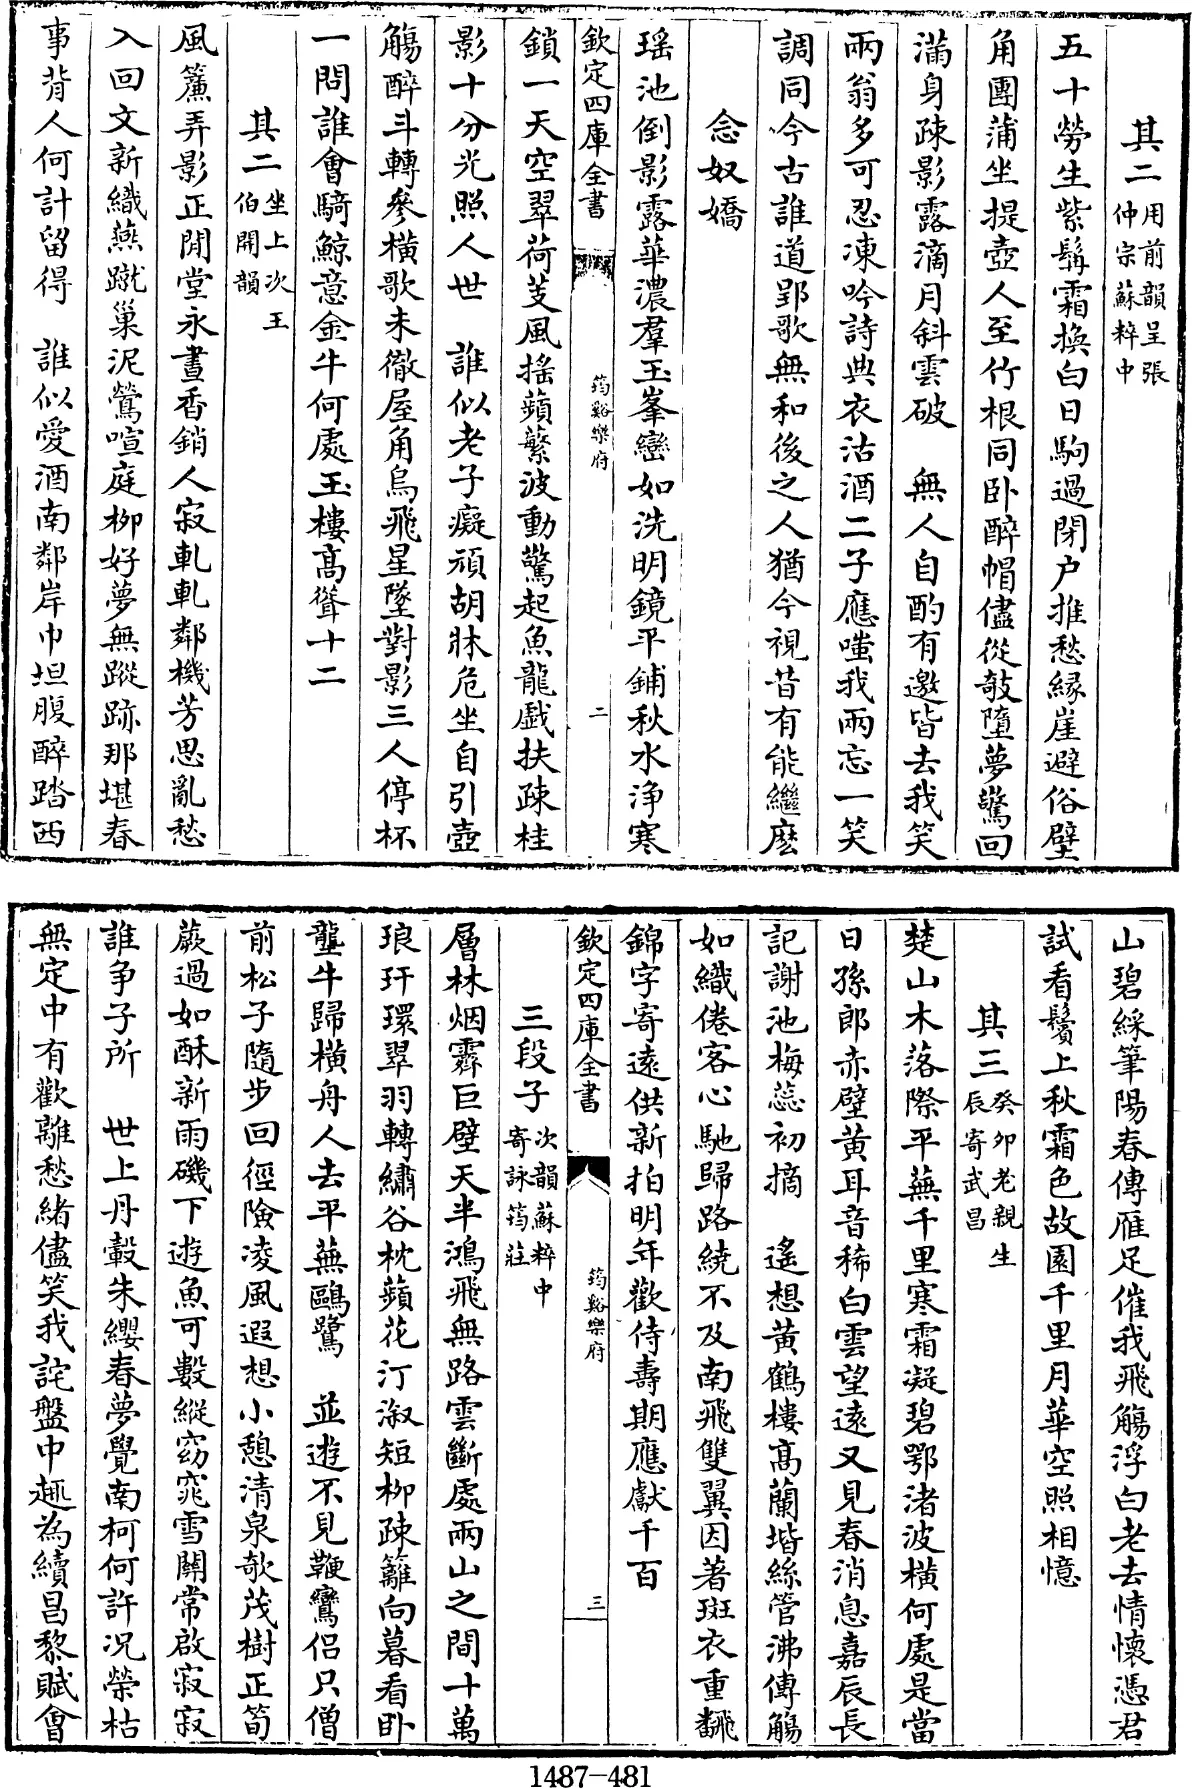 其二用前韻呈張仲宗蘇粹中
五十勞生紫髯霜換白日駒過閉户推愁緣崖避俗壁
角團蒲坐提壺人至竹根同卧醉帽儘從攲墮夢驚回
滿身疎影露滴月斜雲破　無人自酌有邀皆去我笑
兩翁多可忍凍吟詩典衣沽酒二子應嗤我兩忘一笑
調同今古誰道郢歌無和後之人猶今視昔有能繼麽
念奴嬌
瑶池倒影露華濃羣玉峯巒如洗明鏡平鋪秋水浄寒
欽定四庫全書　筠谿樂府　二
鎖一天空翠荷芰風摇蘋蘩波動驚起魚龍戲扶疎桂
影十分光照人世　誰似老子癡頑胡牀危坐自引壺
觴醉斗轉參横歌未徹屋角烏飛星墜對影三人停杯
一問誰會騎鯨意金牛何處玉樓髙聳十二
其二坐上次王伯開韻
風簾弄影正閒堂永晝香銷人寂軋軋鄰機芳思亂愁
入回文新織燕蹴巢泥鶯喧庭栁好夢無蹤跡那堪春
事背人何計留得　誰似愛酒南鄰岸巾坦腹醉踏西
山碧綵筆陽春傳雁足催我飛觴浮白老去情懷憑君
試看鬢上秋霜色故園千里月華空照相憶
其三癸卯老親生辰寄武昌
楚山木落際平蕪千里寒霜凝碧鄂渚波横何處是當
日孫郎赤壁黄耳音稀白雲望遠又見春消息嘉辰長
記謝池梅蕊初摘　遙想黄鶴樓髙蘭堦絲管沸傳觴
如織倦客心馳歸路繞不及南飛雙翼因著斑衣重飜
錦字寄遠供新拍明年歡侍夀期應獻千百
欽定四庫全書　筠谿樂府　三
三段子次韻蘇粹中寄詠筠莊
層林烟霽巨壁天半鴻飛無路雲斷處兩山之間十萬
琅玕環翠羽轉繡谷枕蘋花汀溆短栁疎籬向暮看卧
壟牛歸横舟人去平蕪鷗鷺　並逰不見鞭鸞侣只僧
前松子隨步回徑險凌風遐想小憩清泉欹茂樹正筍
蕨過如酥新雨磯下逰魚可數縱窈窕雪關常啟寂寂
誰争子所　世上丹轂朱纓春夢覺南柯何許况榮枯
無定中有歡離愁緒儘笑我詫盤中趣為續昌黎賦會
1487-481